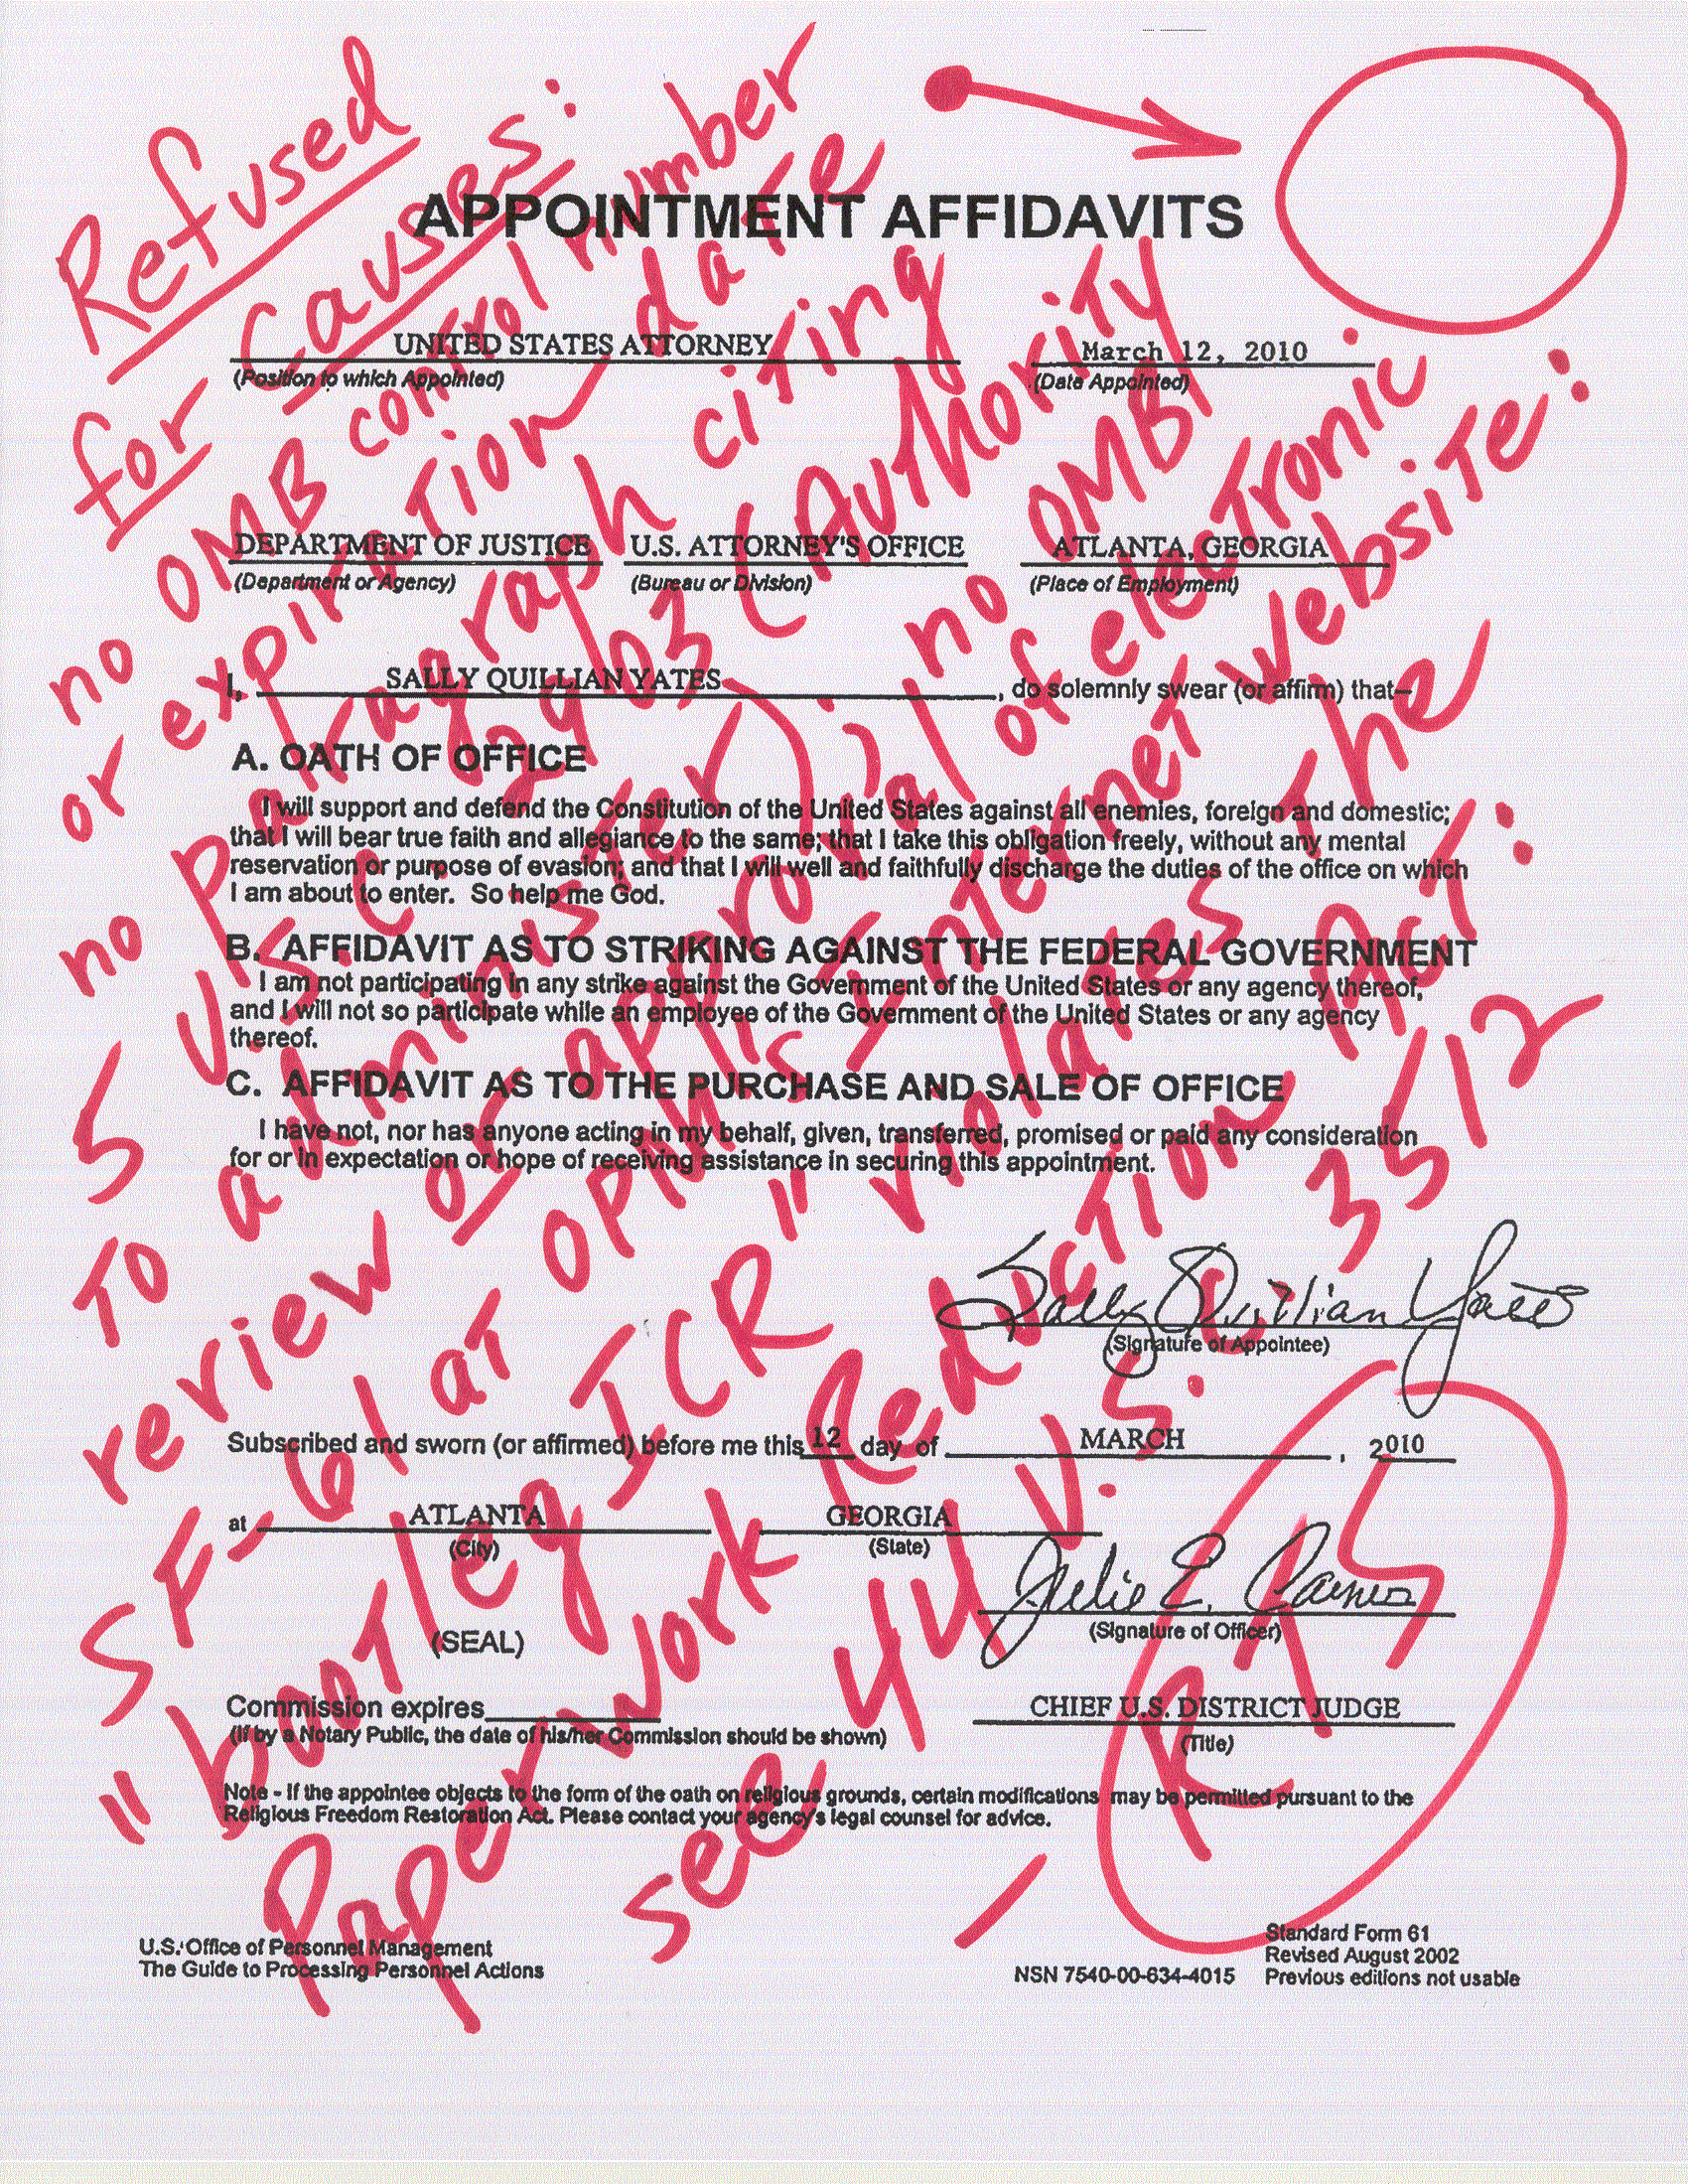 Refused
for Causes:
no OMB control number
or expiration date
no paragraph citing
5 U.S.C. 2903 (Authority
to administer); no OMB
review or approval of electronic
SF-61 at OPM's Internet website:
"bootleg ICR" violates the
Paperwork Reduction Act:
see 44 U.S.C. 3512
RTS
APPOINTMENT AFFIDAVITS
UNITED STATES ATTORNEY March 12, 2010
(Position to which Appointed) (Date Appointed)
DEPARTMENT OF JUSTICE U.S. ATTORNEY'S OFFICE ATLANTA, GEORGIA
(Department or Agency) (Bureau or Division) (Place of Employment)
I, SALLY QUILLIAN YATES, do solemnly swear (or affirm) that--
A. OATH OF OFFICE
I will support and defend the Constitution of the United States against all enemies, foreign and domestic;
that I will bear true faith and allegiance to the same; that I take this obligation freely, without any mental
reservation or purpose of evasion; and that I will well and faithfully discharge the duties of the office on which
I am about to enter. So help me God.
B. AFFIDAVIT AS TO STRIKING AGAINST THE FEDERAL GOVERNMENT
I am not participating in any strike against the Government of the United States or any agency thereof,
and I will not so participate while an employee of the Government of the United States or any agency
thereof.
C. AFFIDAVIT AS TO THE PURCHASE AND SALE OF OFFICE
I have not, nor has anyone acting in my behalf, given, transferred, promised or paid any consideration
for or in expectation or hope of receiving assistance in securing this appointment.
Sally Quillian Yates
(Signature of Appointee)
Subscribed and sworn (or affirmed) before me this 12 day of MARCH, 2010
at ATLANTA GEORGIA
(City) (State)
Julie E. Carnes
(SEAL) (Signature of Officer)
Commission expires CHIEF U.S. DISTRICT JUDGE
(If by a Notary Public, the date of his/her Commission should be shown) (Title)
Note - If the appointee objects to the form of the oath on religious grounds, certain modifications may be permitted pursuant to the
Religious Freedom Restoration Act. Please contact your agency's legal counsel for advice.
U.S. Office of Personnel Management
The Guide to Processing Personnel Actions
NSN 7540-00-634-4015
Standard Form 61
Revised August 2002
Previous editions not usable